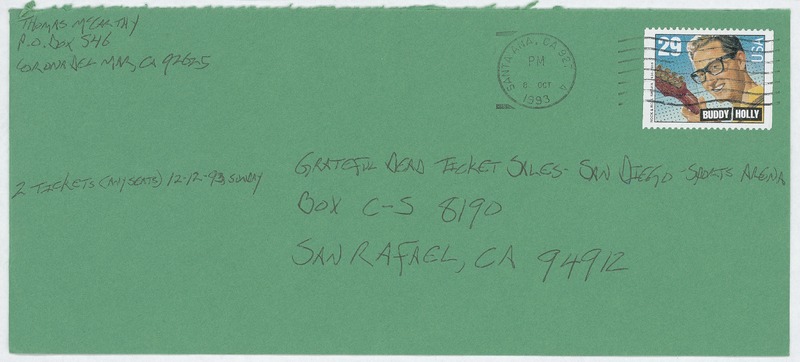 THOMAS McCARTHY
P.O. BOX 546
CORONA DEL MAR, CA 92625
SANTA ANA, CA 927
PM
8 OCT
1993
29
USA
BUDDY HOLLY
2 TICKETS (ANY SEATS) 12-12-93, SUNDAY
GRATEFUL DEAD TICKET SALES- SAN DIEGO -SPORTS ARENA
BOX C-S 8190
SAN RAFAEL, CA 94912